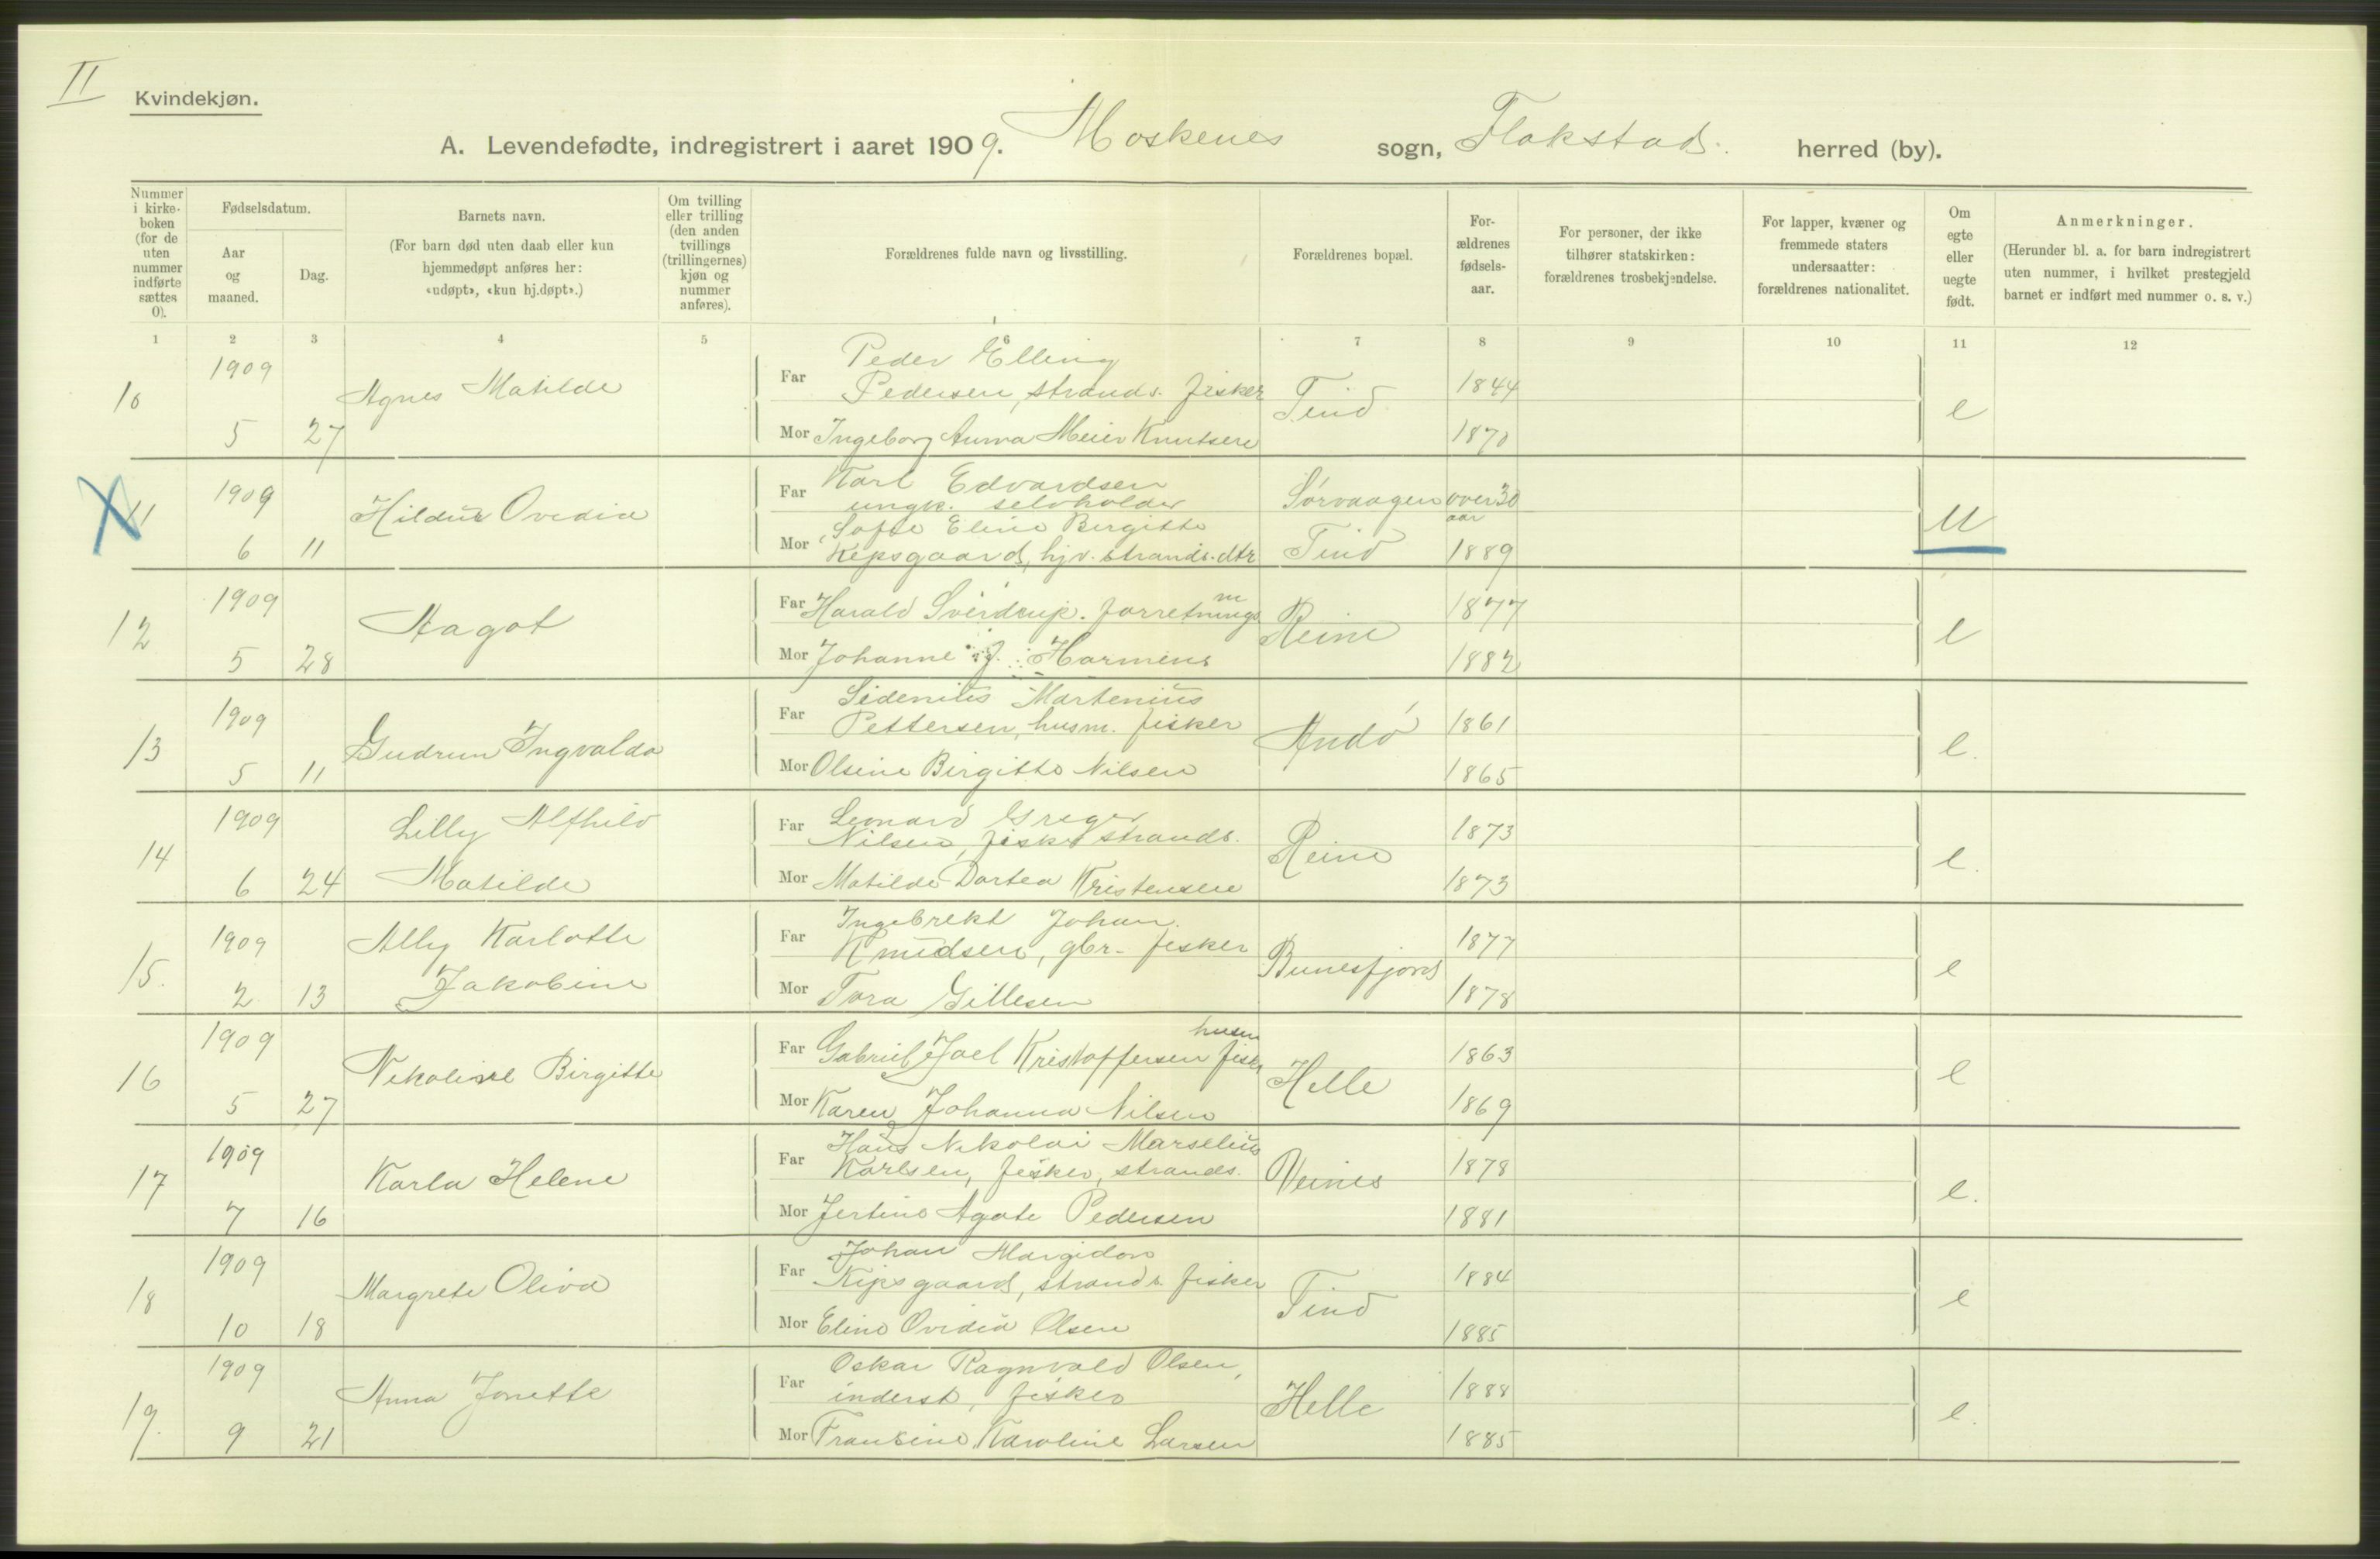 II
Kvindekjøn.
A. Levendefødte, indregistrert i aaret 1909. Moskenes sogn, Flakstad. herred (by).
Nummer i kirke-boken (for de uten nummer indførte sættes 0).
Fødselsdatum.
Aar og maaned.
Dag.
Barnets navn.
(For barn død uten daab eller kun hjemmedøpt anføres her: «udøpt», «kun hj.døpt».)
Om tvilling eller trilling (den anden tvillings (trillingernes) kjøn og nummer anføres).
Forældrenes fulde navn og livsstilling.
Forældrenes bopæl.
For-ældrenes fødsels-aar.
For personer, der ikke tilhører statskirken: forældrenes trosbekjendelse.
For lapper, kvæner og fremmede staters undersaatter: forældrenes nationalitet.
Om egte eller uegte født.
Anmerkninger.
(Herunder bl. a. for barn indregistrert uten nummer, i hvilket prestegjeld barnet er indført med nummer o. s. v.)
1 2 3 4 5 6 7 8 9 10 11 12
10 1909 5 27 Agnes Matilde
Far Peder Elling
Pedersen, strands. fisker Tind 1844 e
Mor Ingeborg Anna Meier Knutsen 1870
11 1909 6 11 Hildur Ovedia
Far Karl Edvardsen
ungk. selvholder Sørvaagen over 30 aar u
Mor Sofie Eline Birgitte
Kepsgaard, hjv. strands. dtr Tind 1889
12 1909 5 28 Aagot
Far Harald Sverdrup. forretnings m Reine 1877 e
Mor Johanne J. Harmens 1882
13 1909 5 11 Gudrun Ingvalda
Far Sidenius Martenius
Pettersen, husm. fisker Andø 1861 e.
Mor Olsine Birgitte Nilsen 1865
14 1909 6 24 Lilly Alfhild
Matilde
Far Leonard Greger
Nilsen, fisker strands. Reine 1873 e.
Mor Matilde Dortea Kristensen 1873
15. 1909 2 13 Ally Karlotte
Jakobine
Far Ingebrekt Johan.
Knudsen, gbr- fisker Bunesfjord 1877 e
Mor Tora Gillesen 1878
16 1909 5 27 Nikoline Birgitte
Far Gabriel Joel Kristoffersen husm fisker Helle 1863 e
Mor Karen Johanna Nilsen 1869
17 1909 7 16 Karla Helene
Far Hans Nikolai Marselius
Karlsen, fisker, strands. Veines 1878 e.
Mor Jertine Agate Pedersen 1881
18 1909 10 18 Margrete Oliva
Far Johan Margido
Kipsgaard, strands fisker Tind 1884 e
Mor Eline Ovidia Olsen 1885
19. 1909 9 21 Anna Jonette
Far Oskar Ragnvald Olsen,
inderst, fisker Helle 1888 e.
Mor Fransine Karoline Larsen 1885